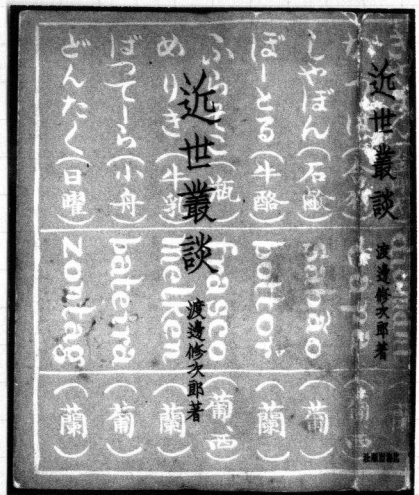 近世叢談
渡邊修次郎著
北海出版社
近世叢談
渡邊修次郎著
しやぼん(石鹼) sabão (葡)
ぼーとる(牛酪) bottor (蘭)
ふらすこ(瓶) frasco (葡、西)
めりき(牛乳) melken (蘭)
ばつてーら(小舟) bateira (葡)
どんたく(日曜) zontag (蘭)